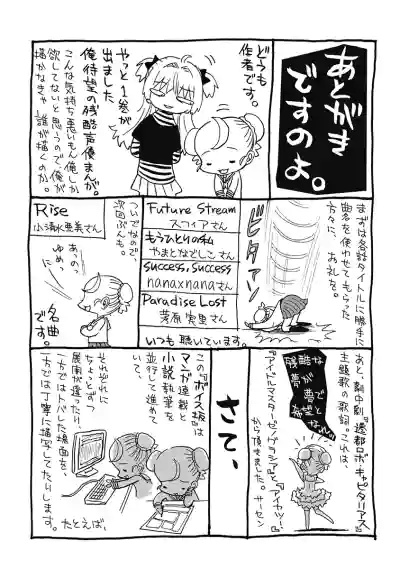 あとがき
ですのよ。
どうも
作者です。
やっと1巻が
出ました
俺待望の残酷声優まんが。
こんな気持ち悪いもん俺しか
欲してないと思うので俺が
描かなきゃ誰が描くのか。
まずは各話タイトルに勝手に
曲名を使わせてもらった
方々に、お礼を。
ビタァン
Future Stream
スフィアさん
もうひとりの私
やまとなでしこさん
success,success
nana×nanaさん
Paradise Lost
茅原実里さん
いつも聴いています。
ついでなので、
次回ぶんも。
Rise
小清水亜美さん
あっのっ
ゆめっ
に
名曲
です。
あと、劇中劇『遊都ロボキャピタリアス』
主題歌の歌詞。これは、
『アイドルマスターゼノグラシア』と『アイカツ!』
から頂きました。サーセン
残酷な
夢が夢で
さて、
この『ボイス坂』は
マンガ連載と
小説執筆を
並行して進めて
いて、
それぞれに
ちょっとずつ
展開が違ったり、
一方ではトバした場面を、
一方では丁寧に描写してたりします。
たとえば、